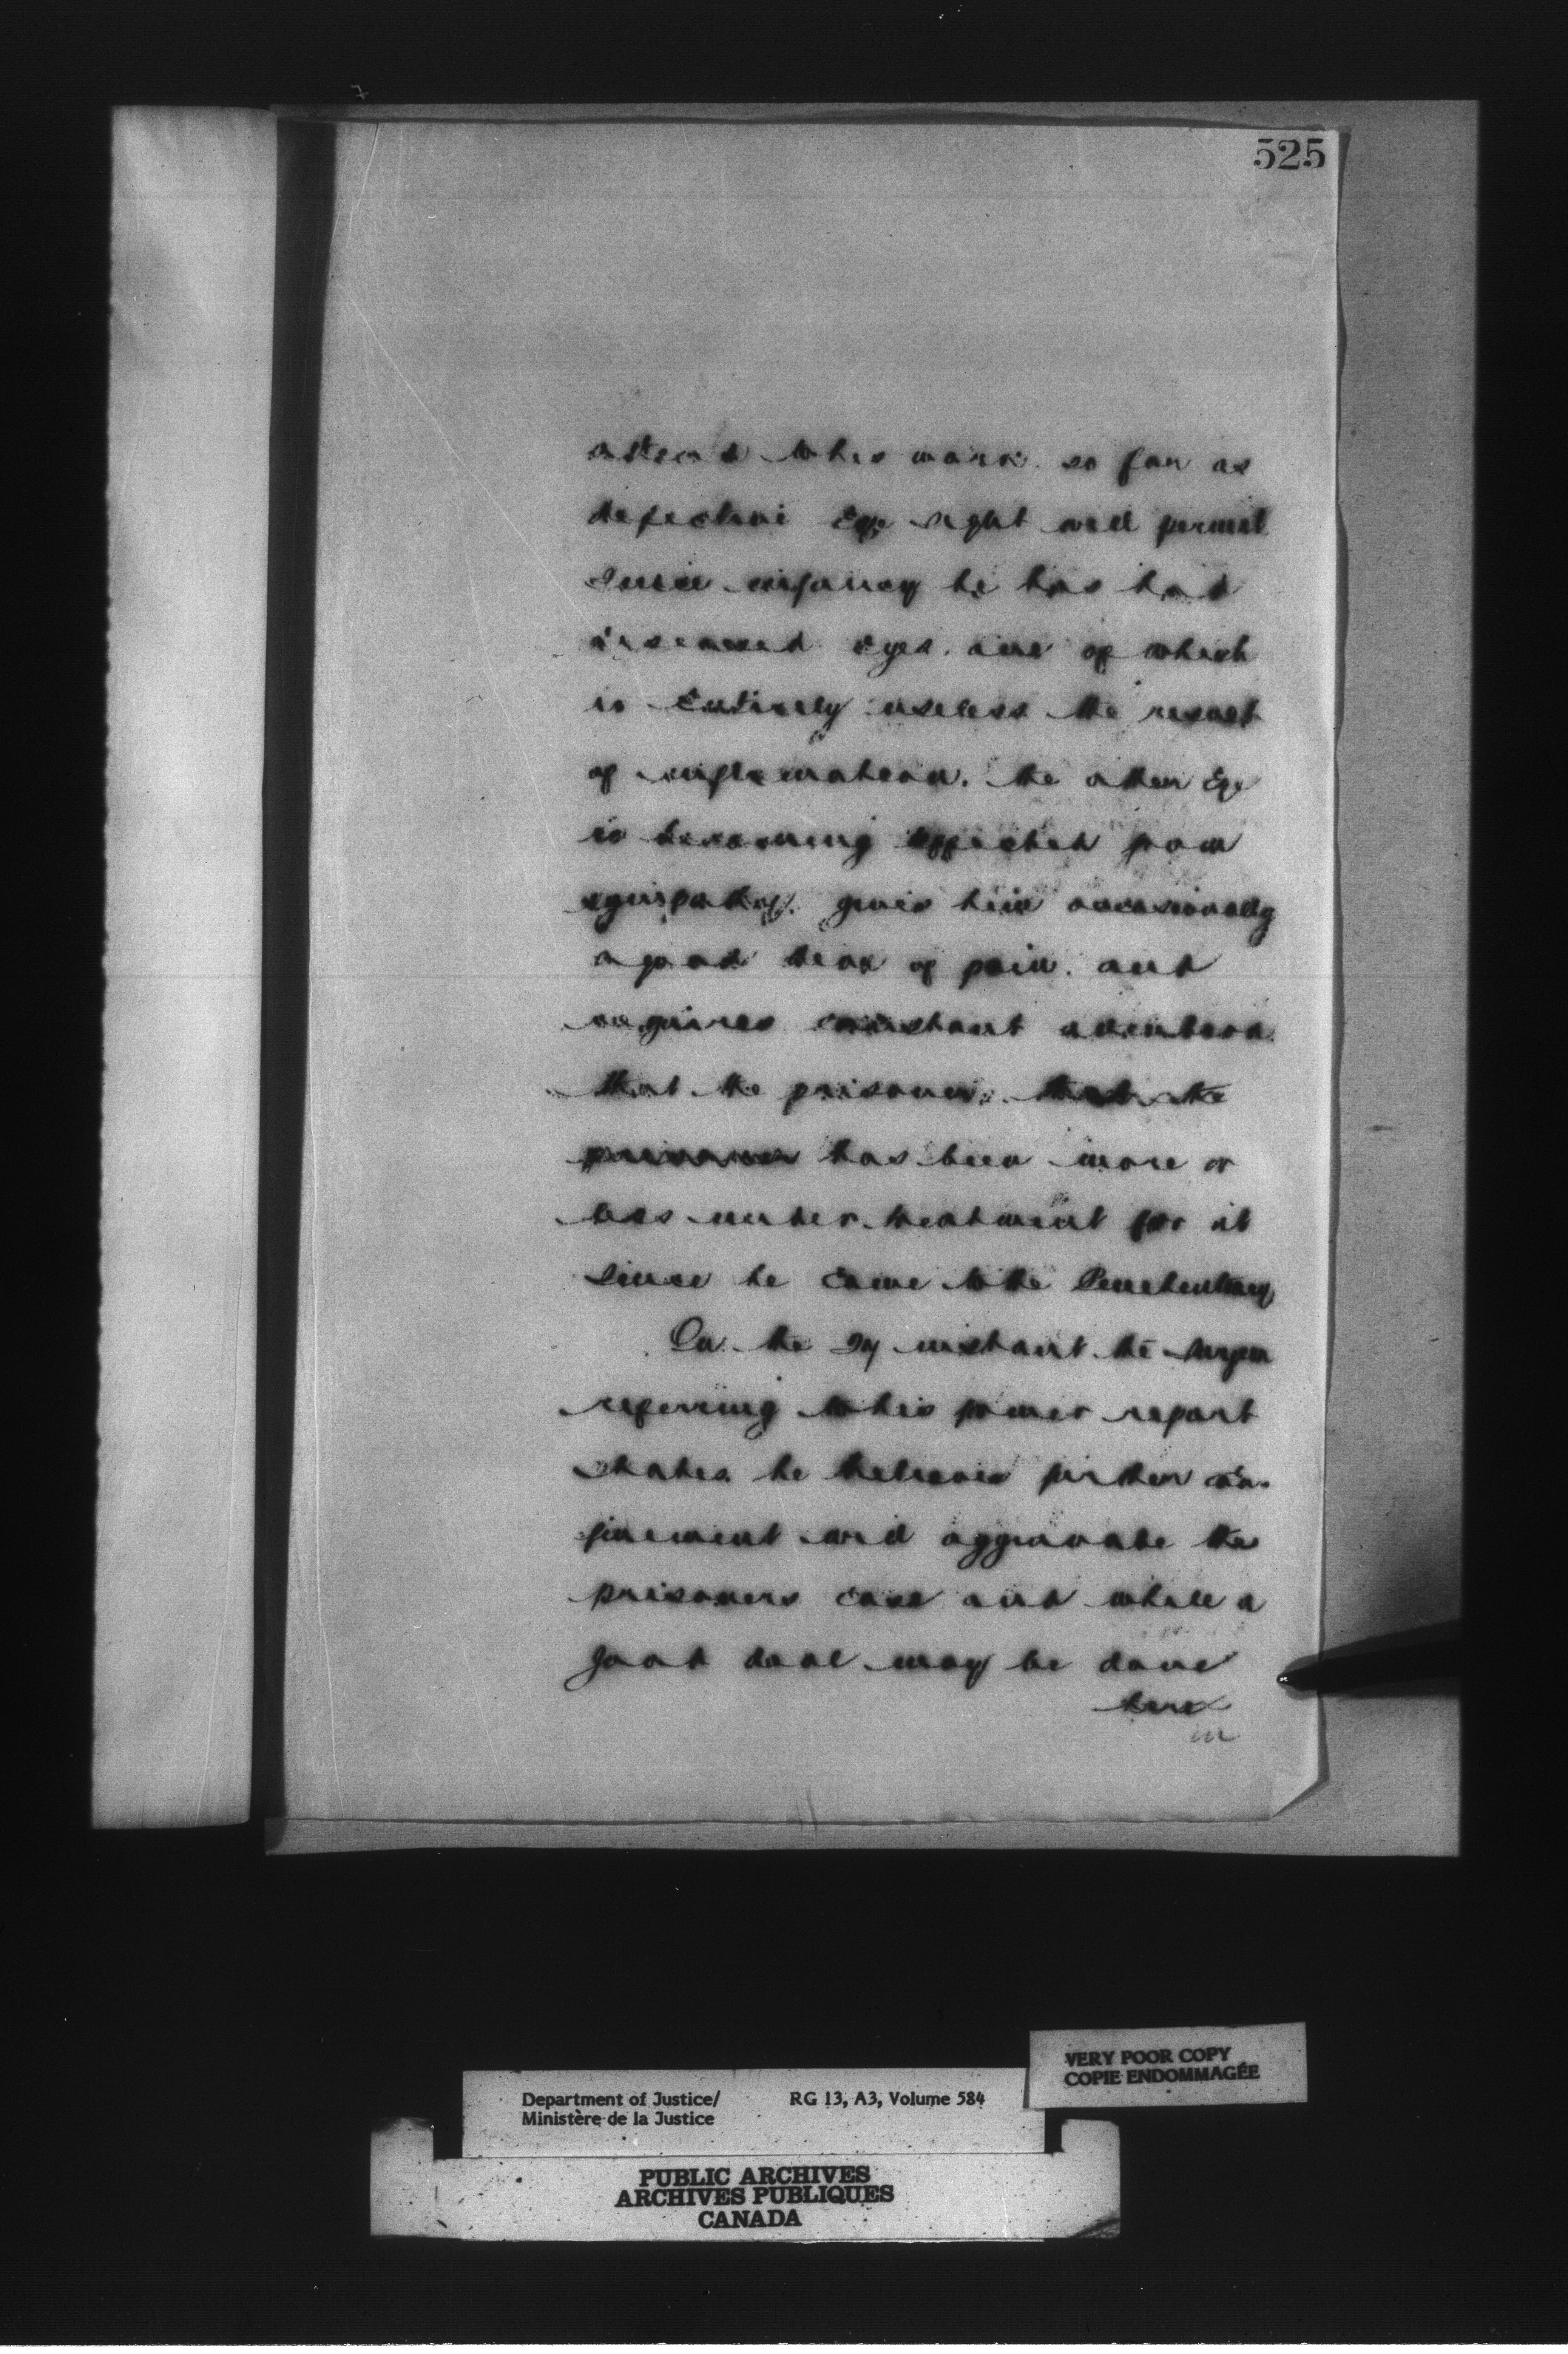 525
attend to his work so far as
defective Eye sight will permit
Since infancy he has had
diseased eyes. one of which
is Entirely useless the result
of inflamation. the other Eye
is becoming affected from
sympathy. gives him occasionally
a good deal of pain. and
requires constant attention
that the prisoner, that the
prisoner has been more or
less under treatment for it
since he came to the Penetentiary
On the instant the Surgeon
referring to his former report
states he believes further con-
finement will aggravate the
prisoners case and while a
good deal may be done
here
in
VERY POOR COPY
COPIE ENDOMMAGÉE
Department of Justice/ RG 13, A3, Volume 584
Ministère de la Justice
PUBLIC ARCHIVES
ARCHIVES PUBLIQUES
CANADA